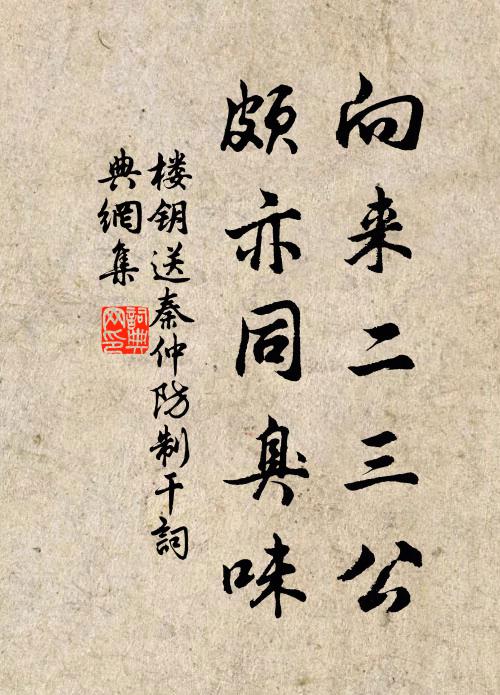 向来二三公
颇亦同臭味
楼钥送秦仲防制干詞
典網集
詞典网印